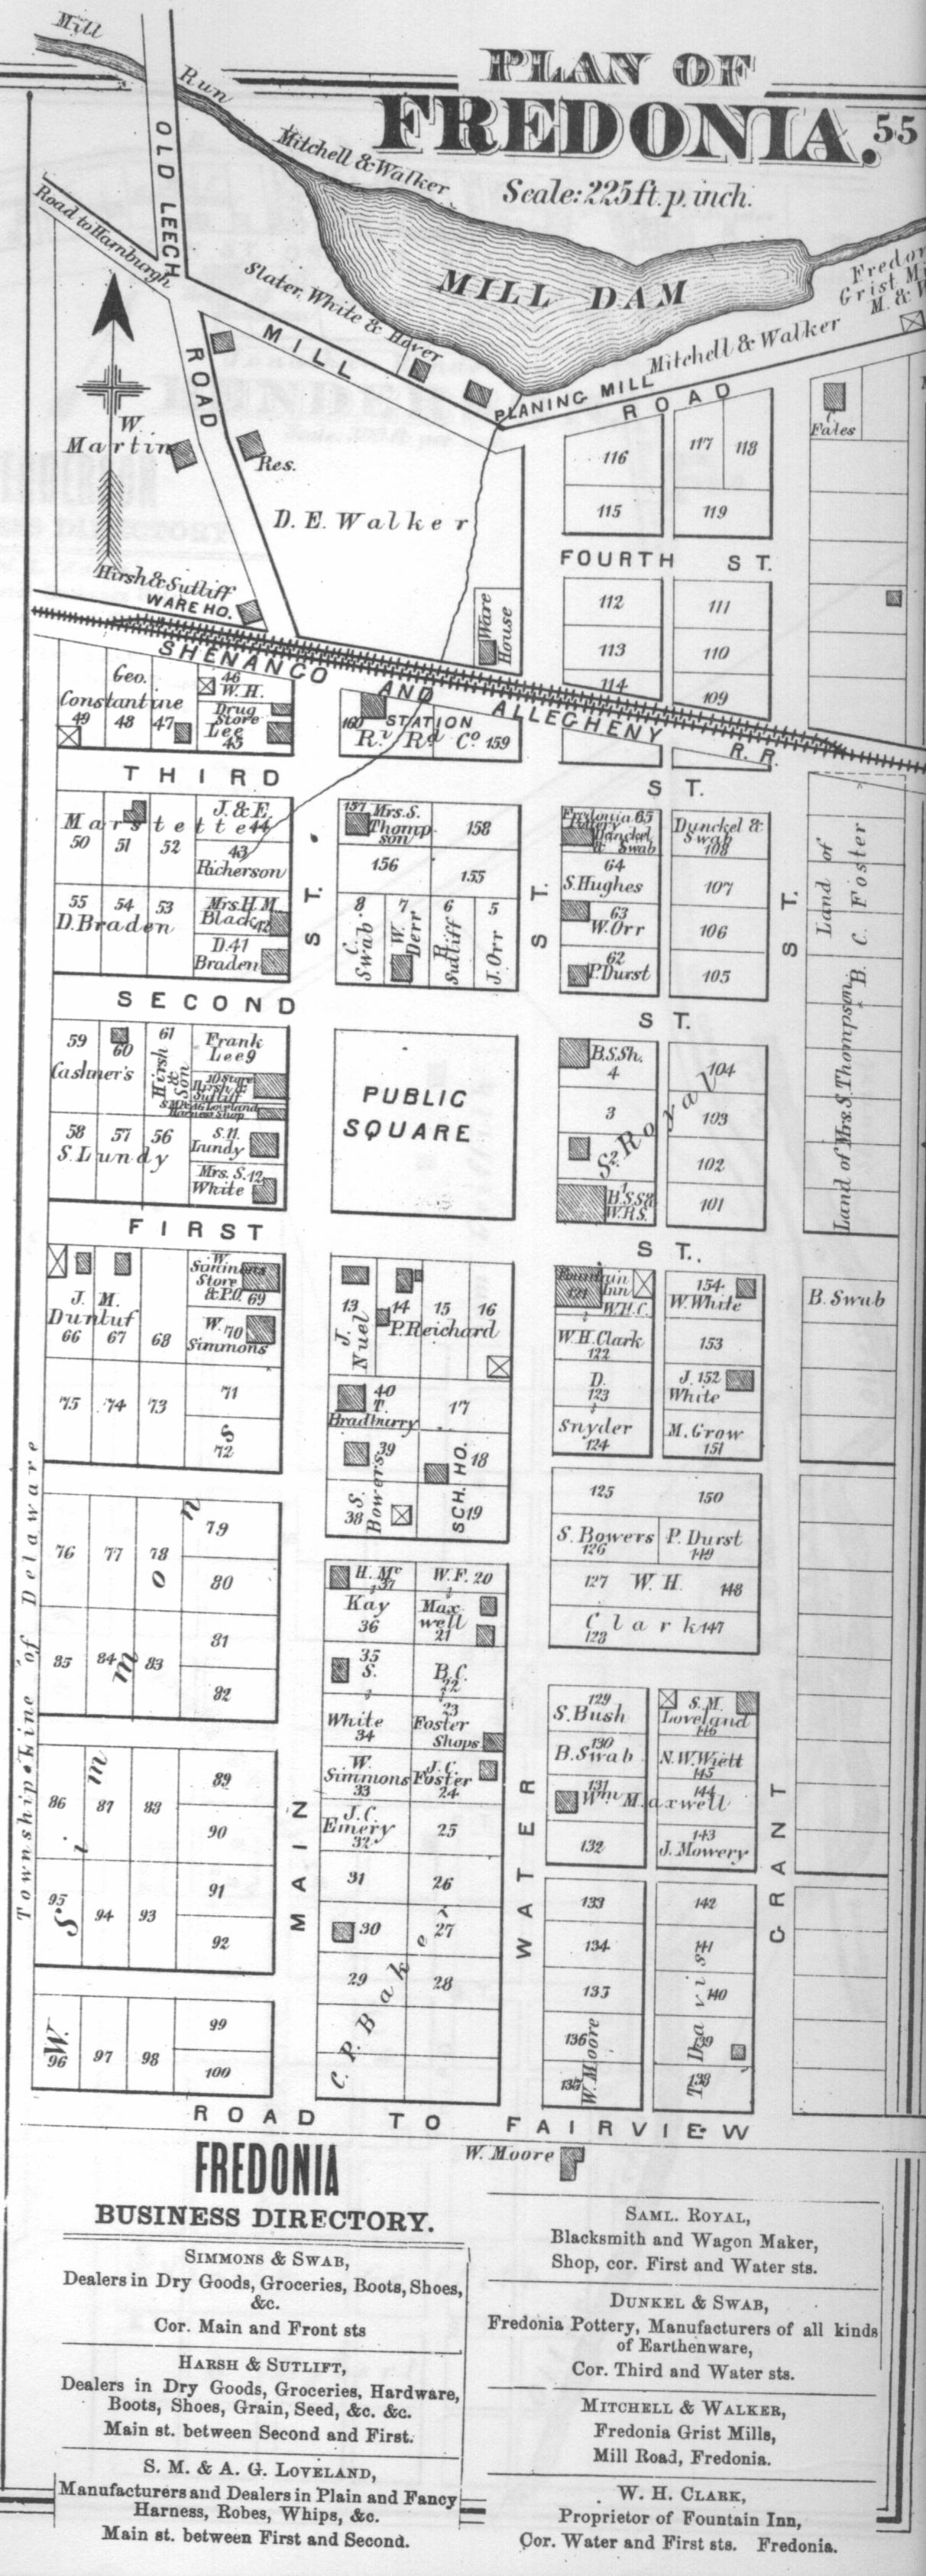 PLAN OF
FREDONIA.
55
Scale: 225 ft. p. inch.
Mill
Run
OLD LEECH
ROAD
Road to Hamburgh
Mitchell & Walker
MILL DAM
Slater, White & Hover
MILL
PLANING MILL
Mitchell & Walker
ROAD
Grist
M. &
W.
Martin
Res.
D. E. Walker
Hirsh & Sutliff
WARE HO.
Ware
House
116
117
118
115
119
Fales
FOURTH ST.
112
111
113
110
114
109
SHENANGO AND ALLEGHENY R. R.
Geo.
Constantine
49
48
47
46
W. H.
Drug
Store
Lee
45
160
STATION
R.y R.d Co.
159
THIRD ST.
J. & E.
Marstetter
44
50
51
52
43
Richerson
55
54
53
D. Braden
Mrs. H. M.
Black
42
D. 41
Braden
157
Mrs. S.
Thompson
158
156
155
8
7
6
5
C. Swab
W. Derr
R. Sutliff
J. Orr
Fredonia 65
Pottery
Dunckel
& Swab
Dunckel &
Swab
108
64
S. Hughes
107
63
W. Orr
106
62
P. Durst
105
ST.
ST.
ST.
Land of
B. C. Foster
Land of Mrs. S. Thompson
SECOND ST.
59
60
61
Cashner's
Hirsh
&
Son
Frank
Lee 9
10 Store
Hirsh &
Sutliff
Loveland
Harness Shop
58
57
56
S. Lundy
S. H.
Lundy
Mrs. S. 12
White
PUBLIC
SQUARE
B. S. Sh.
4
3
2
1
S. Royal
B. S. S. &
W. R. S.
104
103
102
101
FIRST ST.
J. M.
66
67
68
W.
Simmons
Store
& P.O. 69
W. 70
Simmons
75
74
73
71
72
13
14
15
16
J. Nuel
P. Reichard
40
T.
Bradburry
17
39
18
38
S. Bowers
SCH. HO.
19
Fountain
Inn
121
W. H. C.
W. H. Clark
122
D.
123
Snyder
124
154
W. White
153
J. 152
White
M. Grow
151
B. Swab
125
150
S. Bowers
126
P. Durst
149
127
W. H.
148
Clark
128
147
76
77
78
79
80
81
82
85
84
83
H. Mc
37
Kay
36
W. F. 20
Maxwell
21
35
S.
White
34
B. C.
22
23
Foster
Shops
W.
Simmons
33
J. C.
Foster
24
J. C.
Emery
32
25
31
26
30
27
29
28
C. P. Baker
129
S. Bush
130
B. Swab
131
Wm. Maxwell
132
S. M.
Loveland
146
N. W. Wiett
145
144
143
J. Mowery
133
134
135
136
137
W. Moore
142
141
140
139
138
T. Davis
86
87
88
89
90
91
92
95
94
93
96
97
98
99
100
W. Simmons
Township Line of Delaware
MAIN
WATER
GRANT
ROAD TO FAIRVIEW
W. Moore
FREDONIA
BUSINESS DIRECTORY.
SIMMONS & SWAB,
Dealers in Dry Goods, Groceries, Boots, Shoes,
&c.
Cor. Main and Front sts
HARSH & SUTLIFT,
Dealers in Dry Goods, Groceries, Hardware,
Boots, Shoes, Grain, Seed, &c. &c.
Main st. between Second and First.
S. M. & A. G. LOVELAND,
Manufacturers and Dealers in Plain and Fancy
Harness, Robes, Whips, &c.
Main st. between First and Second.
SAML. ROYAL,
Blacksmith and Wagon Maker,
Shop, cor. First and Water sts.
DUNKEL & SWAB,
Fredonia Pottery, Manufacturers of all kinds
of Earthenware,
Cor. Third and Water sts.
MITCHELL & WALKER,
Fredonia Grist Mills,
Mill Road, Fredonia.
W. H. CLARK,
Proprietor of Fountain Inn,
Cor. Water and First sts. Fredonia.